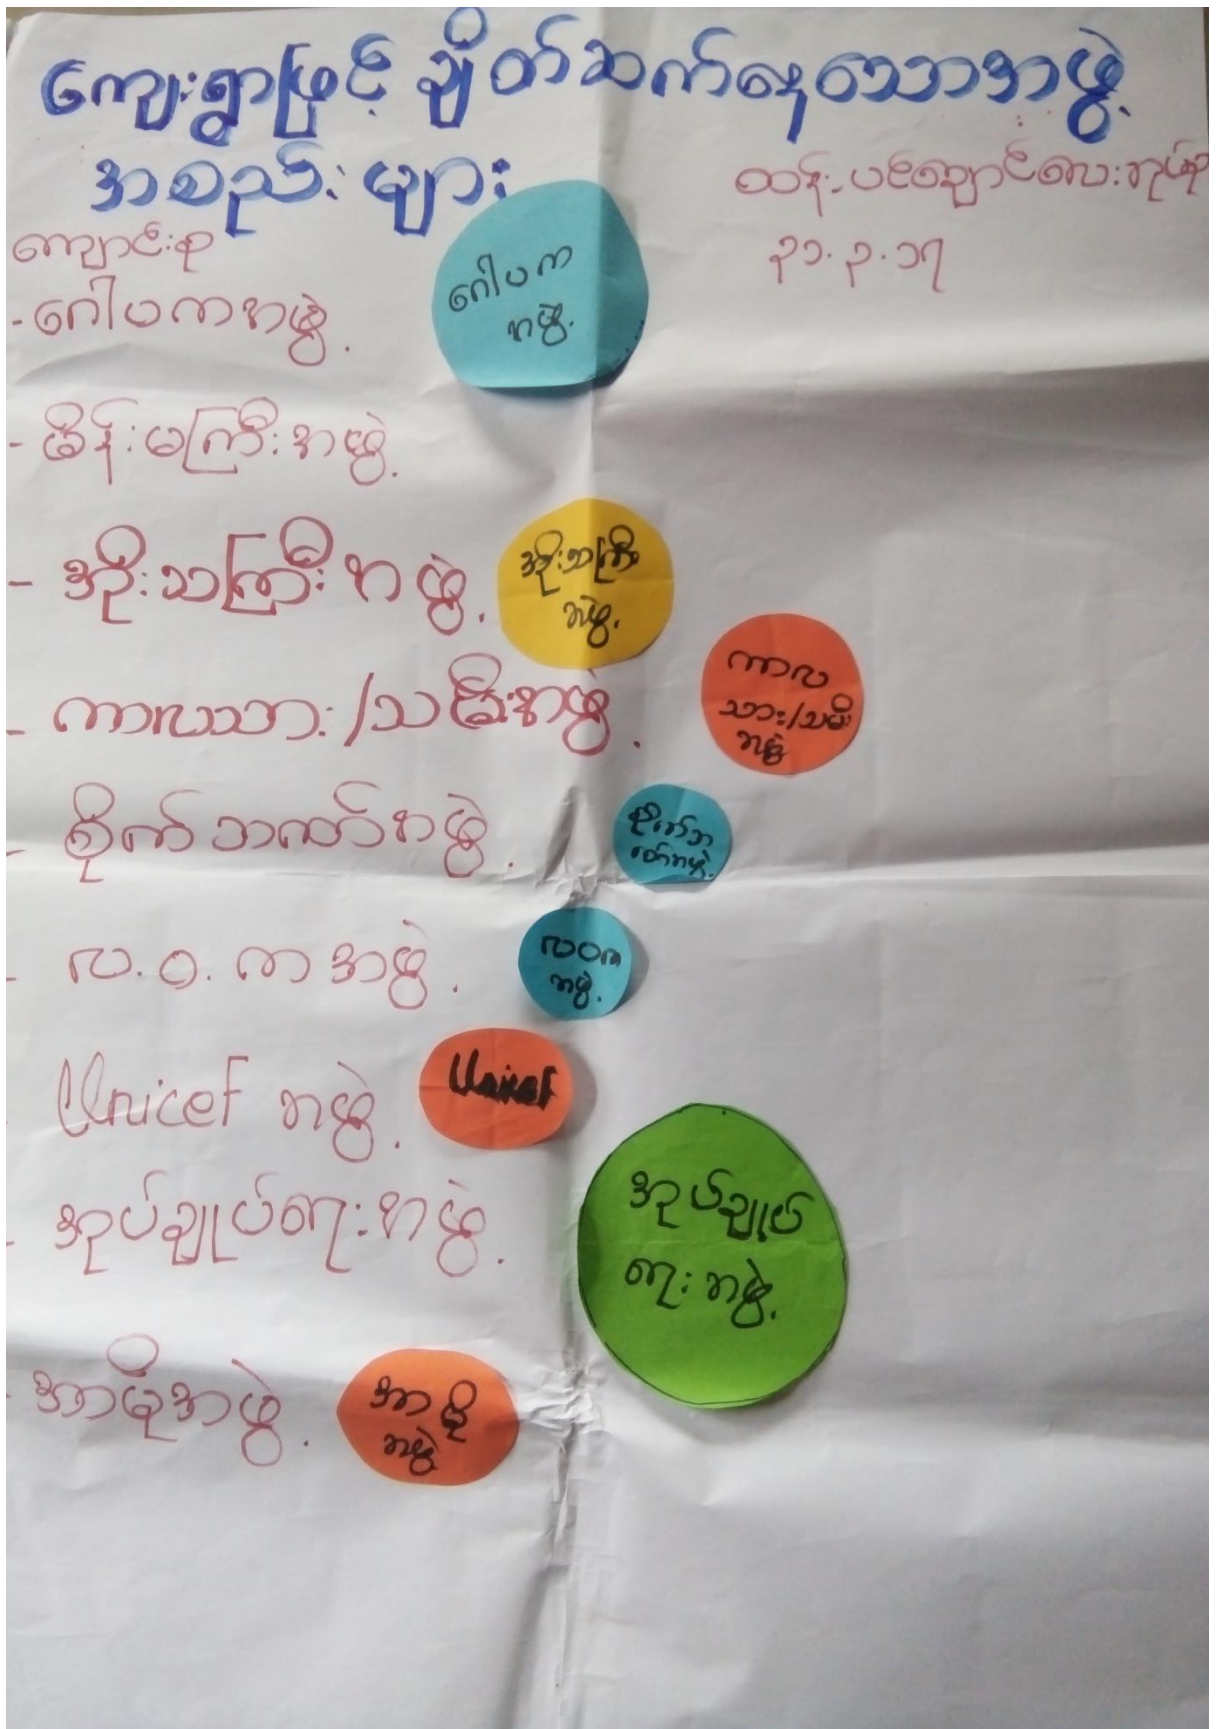 ကျေးရွာဖြင့် ချိတ်ဆက်နေသောအဖွဲ့
အစည်းများ
ထန်းပင်ချောင်လေးအုပ်စု
၃၁.၃.၁၇
ကျောင်းစု
- ဂေါပကအဖွဲ့.
ဂေါပက
အဖွဲ့.
- မိန်းမကြီးအဖွဲ့.
- အိုးသကြီးအဖွဲ့.
အိုးသကြီး
အဖွဲ့.
- ကာလသား/သမီးအဖွဲ့.
ကာလ
သား/သမီး
အဖွဲ့
- စိုက်ဘဏ်အဖွဲ့.
- လ.ဝ.ကအဖွဲ့.
လဝက
အဖွဲ့.
- Unicef အဖွဲ့.
Unicef
- အုပ်ချုပ်ရေးအဖွဲ့.
အုပ်ချုပ်
ရေးအဖွဲ့.
- အာမိုအဖွဲ့.
အာမို
အဖွဲ့